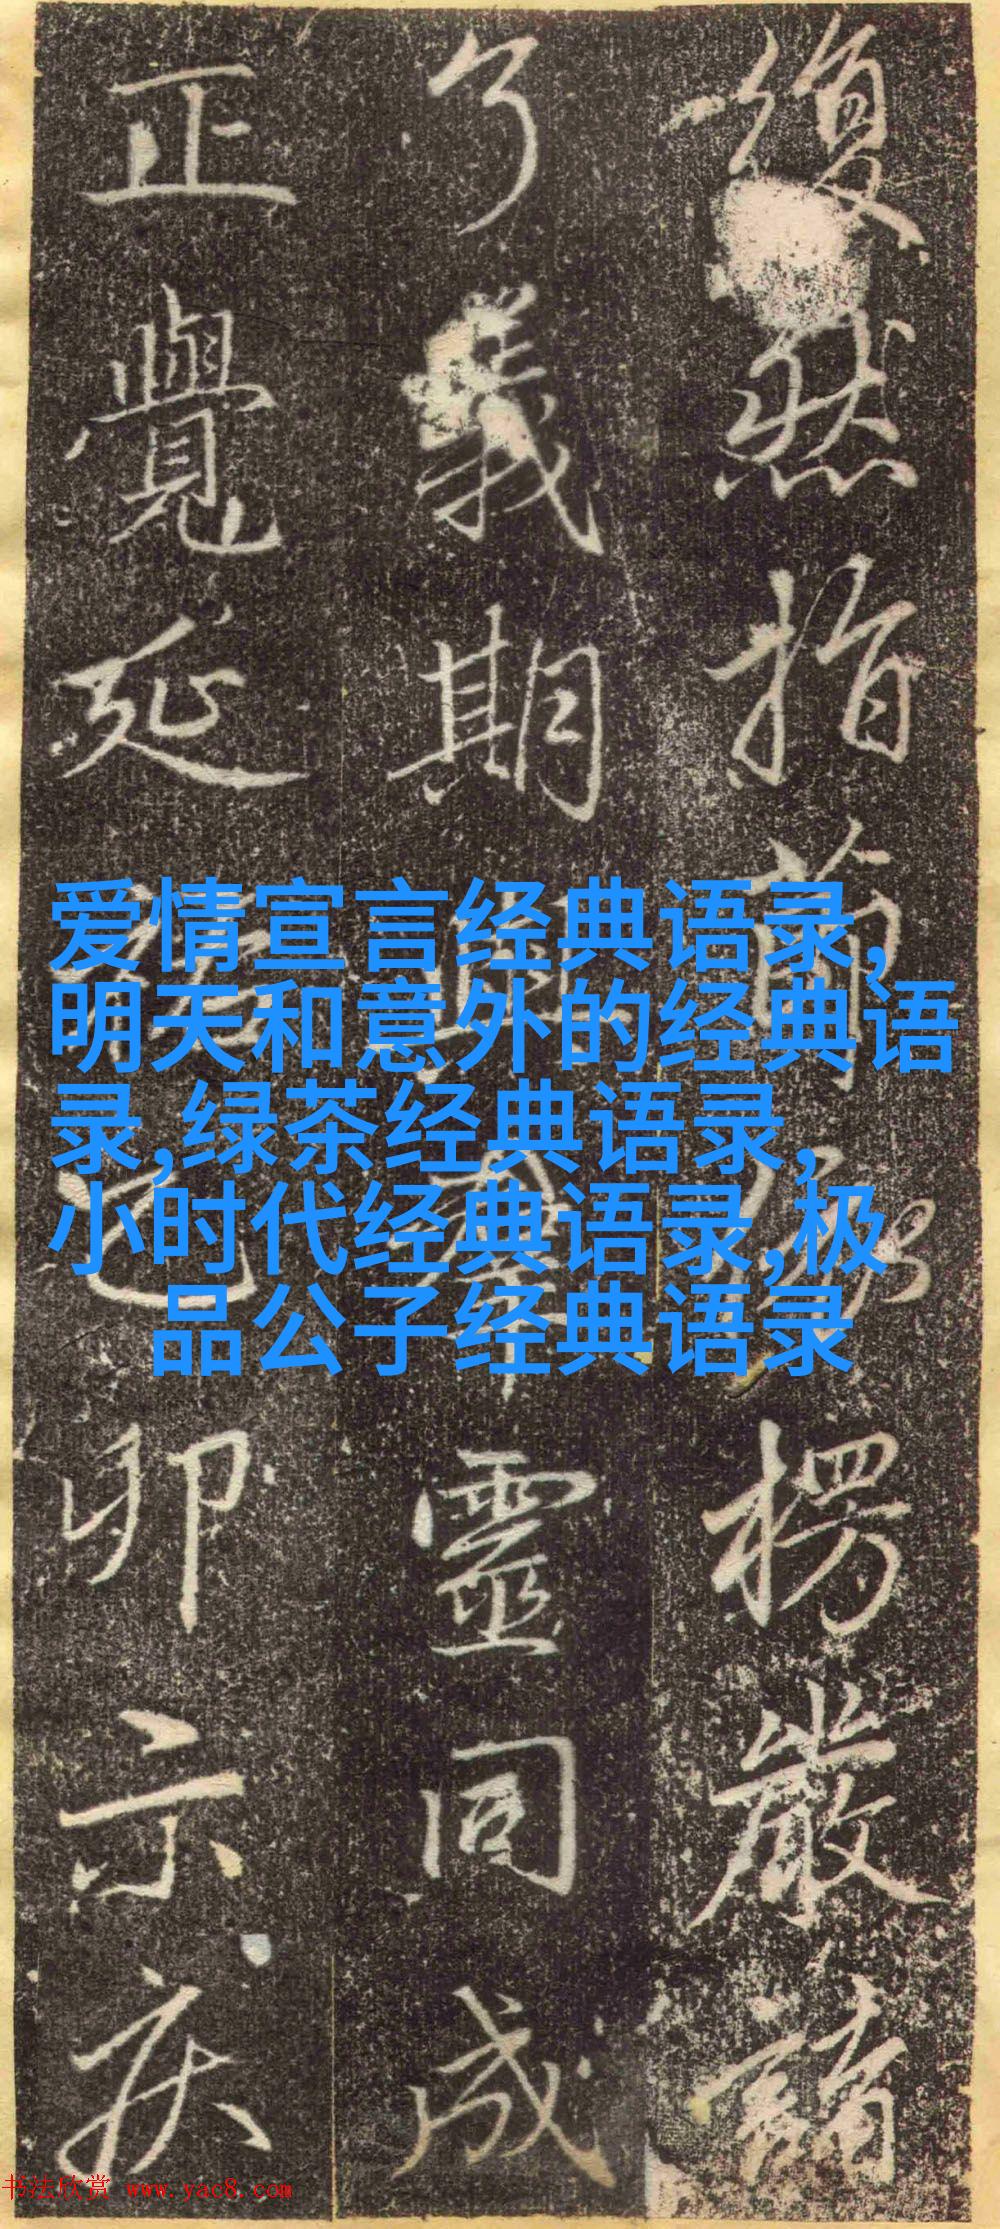 復然指前
楞嚴
了義期
靈同成
正覺延
卯示疾
爱情宣言经典语录,
明天和意外的经典语
录,绿茶经典语录,
小时代经典语录,极
品公子经典语录
书法欣赏 www.yac8.com